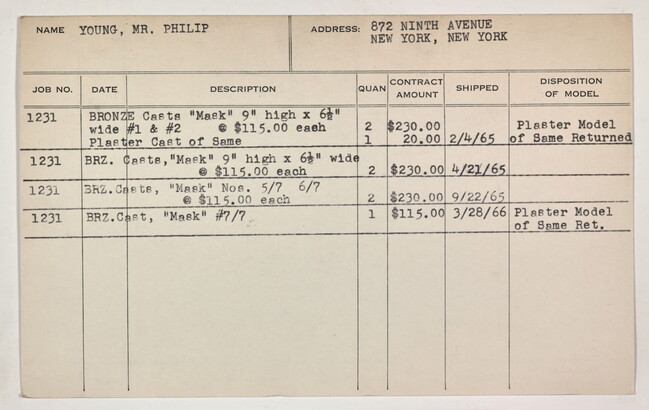 NAME YOUNG, MR. PHILIP ADDRESS: 872 NINTH AVENUE
NEW YORK, NEW YORK
JOB NO. DATE DESCRIPTION QUAN CONTRACT AMOUNT SHIPPED DISPOSITION OF MODEL
1231 BRONZE Casts "Mask" 9" high x 6½"
wide #1 & #2 @ $115.00 each 2 $230.00 Plaster Model
Plaster Cast of Same 1 20.00 2/4/65 of Same Returned
1231 BRZ. Casts,"Mask" 9" high x 6½" wide
@ $115.00 each 2 $230.00 4/21/65
1231 BRZ.Casts, "Mask" Nos. 5/7 6/7
@ $115.00 each 2 $230.00 9/22/65
1231 BRZ.Cast, "Mask" #7/7 1 $115.00 3/28/66 Plaster Model
of Same Ret.